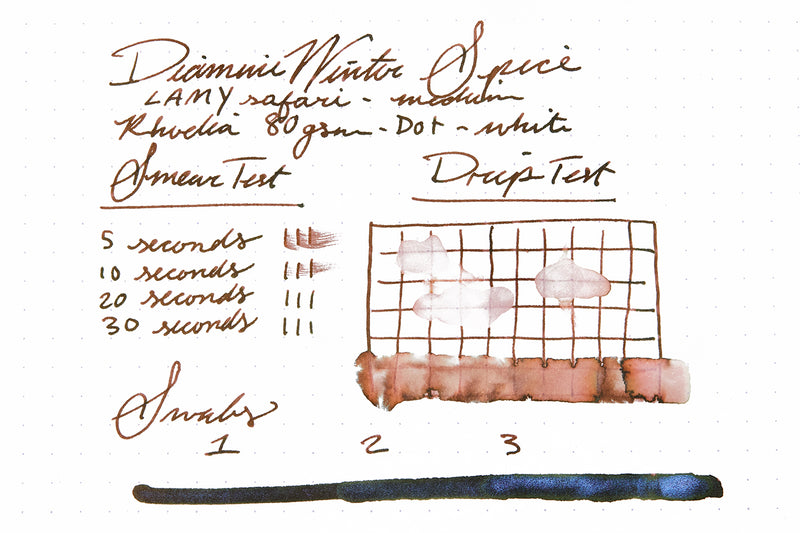 Diamine Winter Spice
LAMY safari - medium
Rhodia 80gsm - Dot - white
Smear Test
Drip Test
5 seconds
10 seconds
20 seconds
30 seconds
Swabs
1 2 3